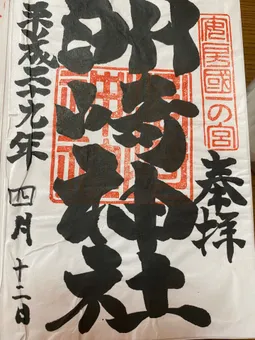 安房國一の宮
奉拝
洲崎神社
平成二十九年四月十二日